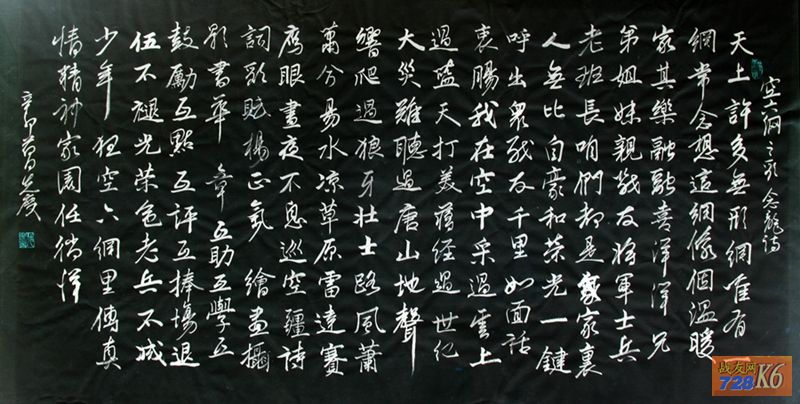 空六網之歌 念龍詩
天上許多無形網唯有一
網常念想這網像個溫暖
家其樂融融喜洋洋兄
弟姐妹親戰友將軍士兵
老班長咱們都是家裏
人無比自豪和榮光一鍵
呼出衆戰友千里如面話
衷腸我在空中采過雲上
過藍天打美蔣經過世紀
大災難聽過唐山地聲
響爬過狼牙壯士路風蕭
兮易水凉草原雷達賽
鷹眼晝夜不息巡空疆詩
詞歌賦揚正氣繪畫攝
影書華章互助互學互
鼓勵互點互評互捧場退
伍不褪光榮色老兵不減
少年狂空六網里傳真
情精神家園任徜徉
辛卯
战友网
728K6